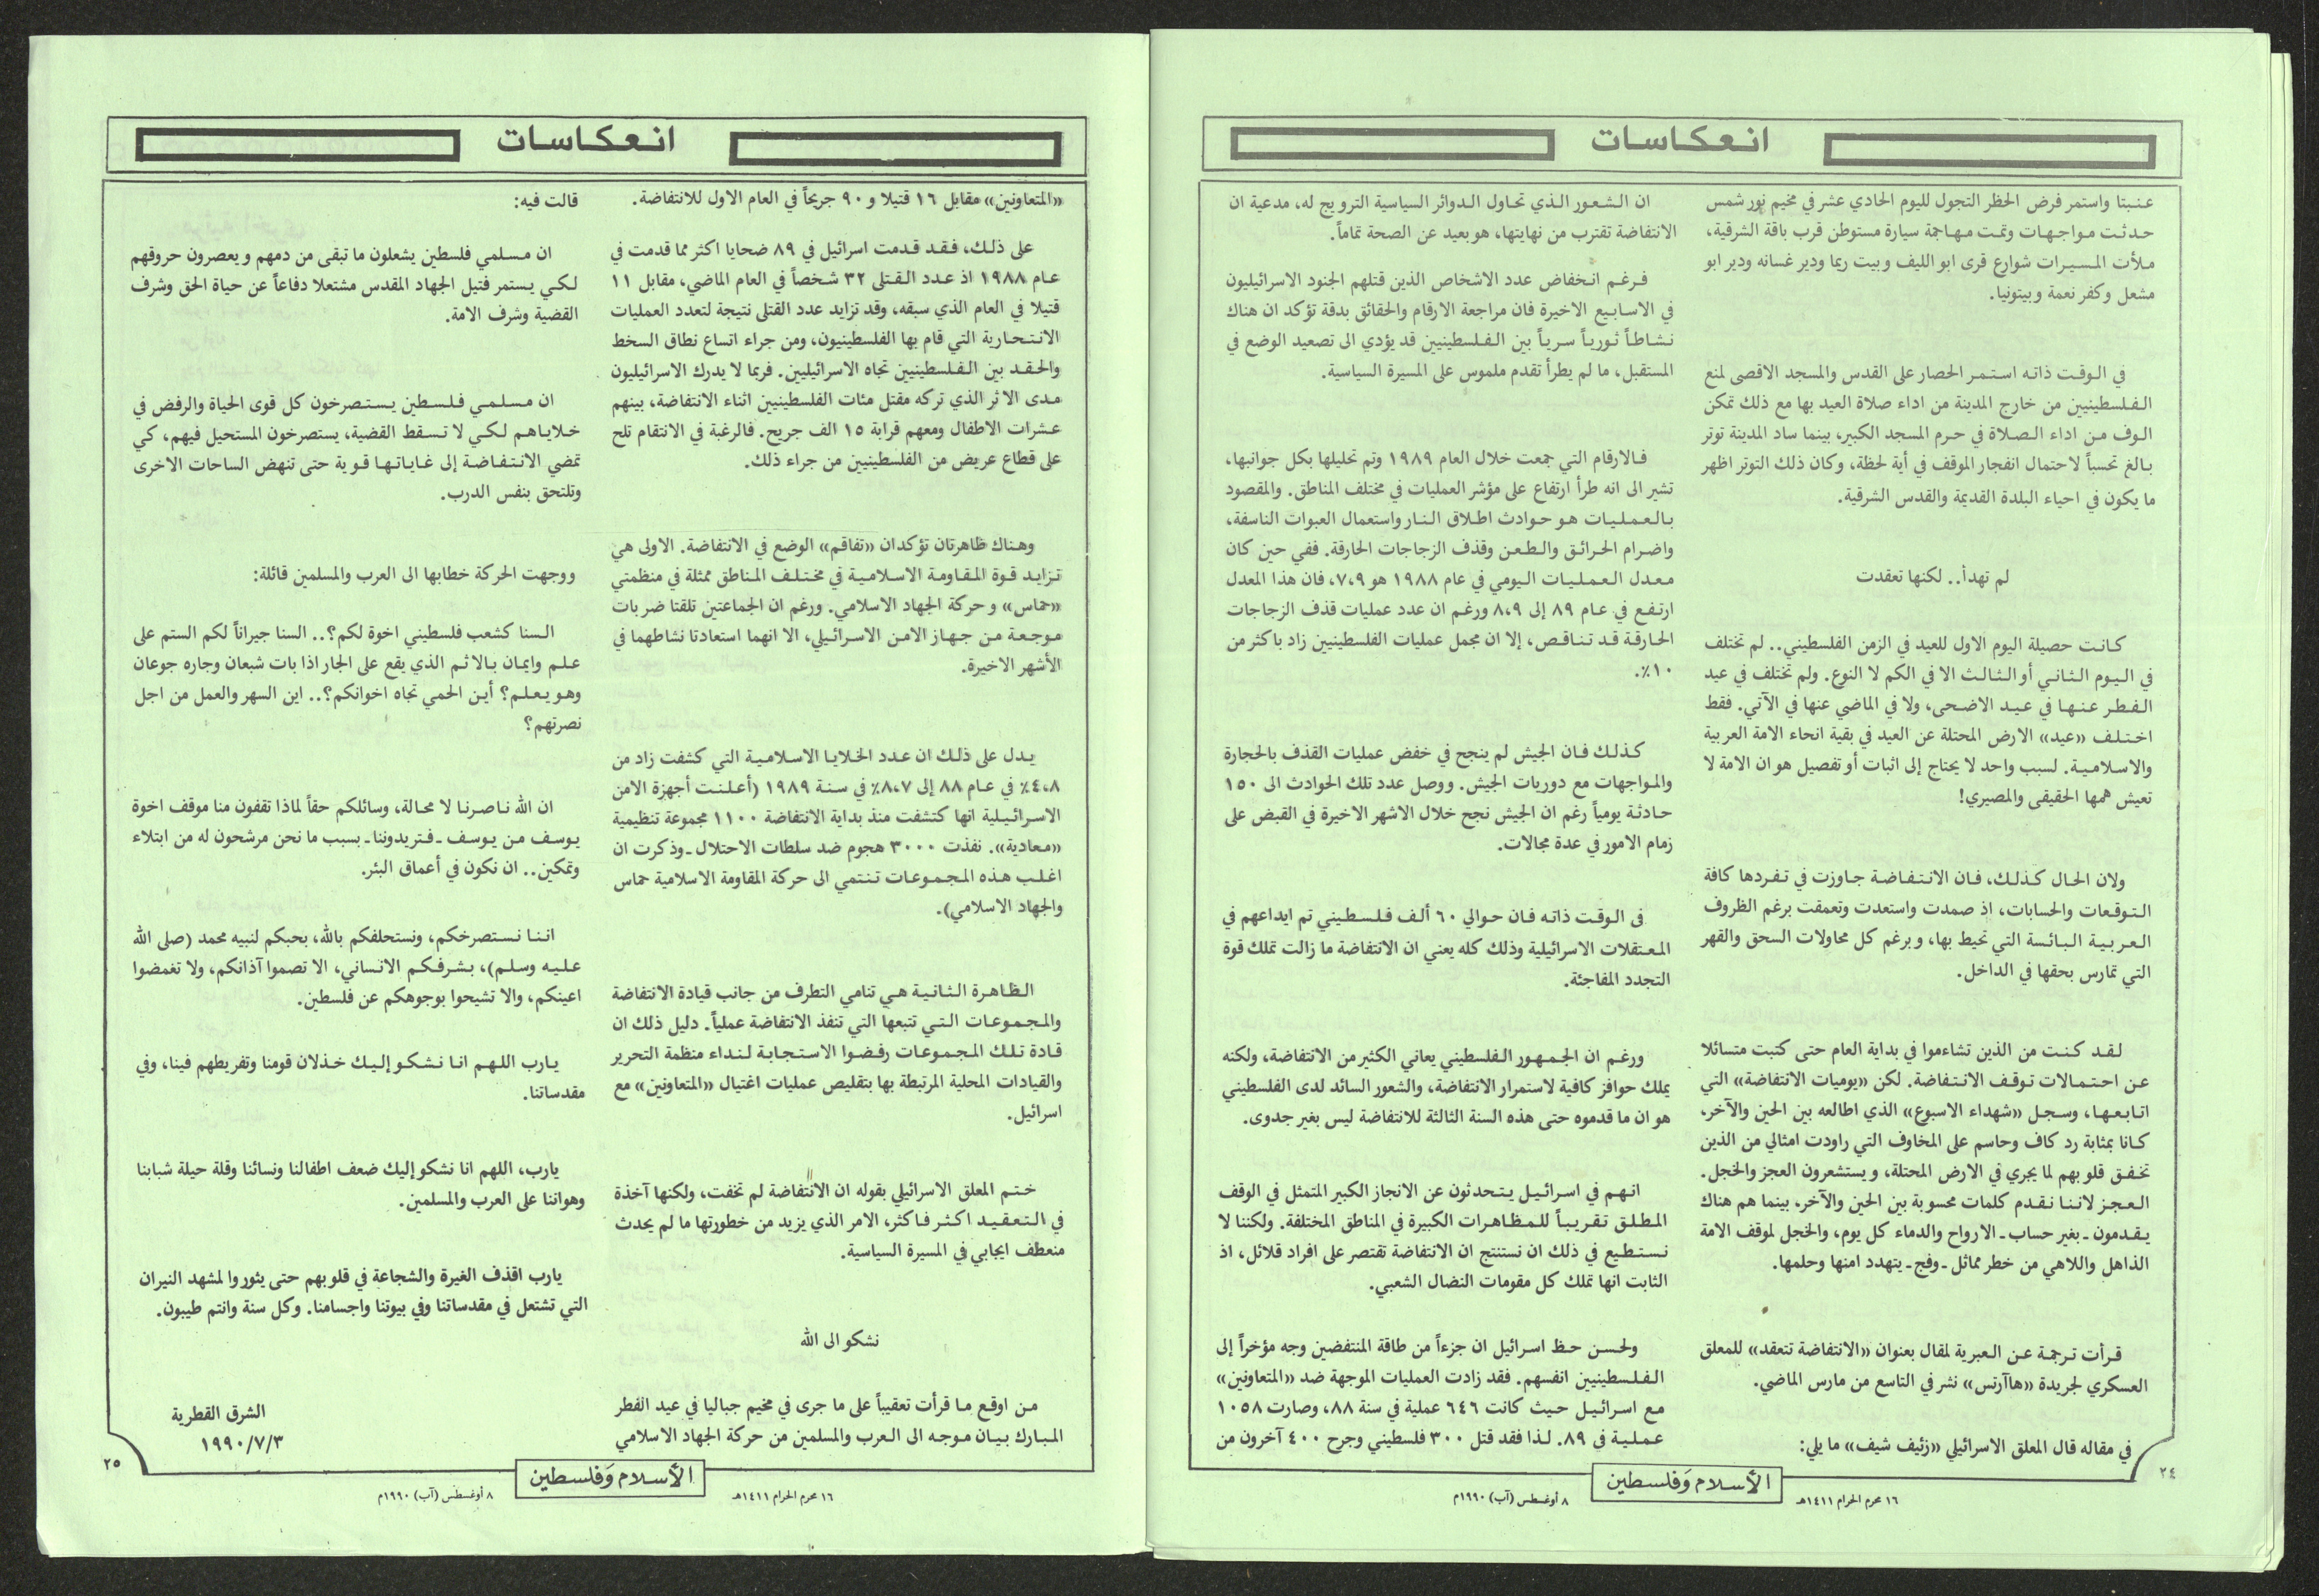 انعكاسات
عنبتا واستمر فرض الحظر التجول لليوم الحادي عشر في مخيم نور شمس
حدثت مواجهات وتمت مهاجمة سيارة مستوطن قرب باقة الشرقية،
ملأت المسيرات شوارع قرى ابو الليف وبيت ريما ودير غسانه ودير ابو
مشعل وكفر نعمة وبيتونيا.
في الوقت ذاته استمر الحصار على القدس والمسجد الاقصى لمنع
الفلسطينيين من خارج المدينة من اداء صلاة العيد بها مع ذلك تمكن
الوف من اداء الصلاة في حرم المسجد الكبير، بينما ساد المدينة توتر
بالغ تحسباً لاحتمال انفجار الموقف في أية لحظة، وكان ذلك التوتر اظهر
ما يكون في احياء البلدة القديمة والقدس الشرقية.
لم تهدأ.. لكنها تعقدت
كانت حصيلة اليوم الاول للعيد في الزمن الفلسطيني.. لم تختلف
في اليوم الثاني أو الثالث الا في الكم لا النوع. ولم تختلف في عيد
الفطر عنها في عيد الاضحى، ولا في الماضي عنها في الآتي. فقط
اختلف «عيد» الارض المحتلة عن العيد في بقية انحاء الامة العربية
والاسلامية. لسبب واحد لا يحتاج إلى اثبات أو تفصيل هو ان الامة لا
تعيش همها الحقيقى والمصيري!
ولان الحال كذلك، فان الانتفاضة جاوزت في تفردها كافة
التوقعات والحسابات، اذ صمدت واستعدت وتعمقت برغم الظروف
العربية البائسة التي تحيط بها، وبرغم كل محاولات السحق والقهر
التي تمارس بحقها في الداخل.
لقد كنت من الذين تشاءموا في بداية العام حتى كتبت متسائلا
عن احتمالات توقف الانتفاضة. لكن «يوميات الانتفاضة» التي
اتابعها، وسجل «شهداء الاسبوع» الذي اطالعه بين الحين والآخر،
كانا بمثابة رد كاف وحاسم على المخاوف التي راودت امثالي من الذين
تخفق قلوبهم لما يجري في الارض المحتلة، ويستشعرون العجز والخجل.
العجز لاننا نقدم كلمات محسوبة بين الحين والآخر، بينما هم هناك
يقدمون ـ بغير حساب ـ الارواح والدماء كل يوم، والخجل لموقف الامة
الذاهل واللاهي من خطر مماثل ـ وفج ـ يتهدد امنها وحلمها.
قرأت ترجمة عن العبرية لمقال بعنوان «الانتفاضة تتعقد» للمعلق
العسكري لجريدة «هاآرتس» نشر في التاسع من مارس الماضي.
في مقاله قال المعلق الاسرائيلي «زئيف شيف» ما يلي:
ان الشعور الذي تحاول الدوائر السياسية الترويج له، مدعية ان
الانتفاضة تقترب من نهايتها، هو بعيد عن الصحة تماماً.
فرغم انخفاض عدد الاشخاص الذين قتلهم الجنود الاسرائيليون
في الاسابيع الاخيرة فان مراجعة الارقام والحقائق بدقة تؤكد ان هناك
نشاطاً ثورياً سرياً بين الفلسطينيين قد يؤدي الى تصعيد الوضع في
المستقبل، ما لم يطرأ تقدم ملموس على المسيرة السياسية.
فالارقام التي جمعت خلال العام ١٩٨٩ وتم تحليلها بكل جوانبها،
تشير الى انه طرأ ارتفاع على مؤشر العمليات في مختلف المناطق. والمقصود
بالعمليات هو حوادث اطلاق النار واستعمال العبوات الناسفة،
واضرام الحرائق والطعن وقذف الزجاجات الحارقة. ففي حين كان
معدل العمليات اليومي في عام ١٩٨٨ هو ٧،٩، فان هذا المعدل
ارتفع في عام ٨٩ إلى ٨،٩ ورغم ان عدد عمليات قذف الزجاجات
الحارقة قد تناقص، إلا ان مجمل عمليات الفلسطينيين زاد باكثر من
١٠٪.
كذلك فان الجيش لم ينجح في خفض عمليات القذف بالحجارة
والمواجهات مع دوريات الجيش. ووصل عدد تلك الحوادث الى ١٥٠
حادثة يومياً رغم ان الجيش نجح خلال الاشهر الاخيرة في القبض على
زمام الامور في عدة مجالات.
فى الوقت ذاته فان حوالي ٦٠ ألف فلسطيني تم ايداعهم في
المعتقلات الاسرائيلية وذلك كله يعني ان الانتفاضة ما زالت تملك قوة
التجدد المفاجئة.
ورغم ان الجمهور الفلسطيني يعاني الكثير من الانتفاضة، ولكنه
يملك حوافز كافية لاستمرار الانتفاضة، والشعور السائد لدى الفلسطيني
هو ان ما قدموه حتى هذه السنة الثالثة للانتفاضة ليس بغير جدوى.
انهم في اسرائيل يتحدثون عن الانجاز الكبير المتمثل في الوقف
المطلق تقريباً للمظاهرات الكبيرة في المناطق المختلفة. ولكننا لا
نستطيع في ذلك ان نستنتج ان الانتفاضة تقتصر على افراد قلائل، اذ
الثابت انها تملك كل مقومات النضال الشعبي.
ولحسن حظ اسرائيل ان جزءاً من طاقة المنتفضين وجه مؤخراً إلى
الفلسطينيين انفسهم. فقد زادت العمليات الموجهة ضد «المتعاونين»
مع اسرائيل حيث كانت ٦٤٦ عملية في سنة ٨٨، وصارت ١٠٥٨
عملية في ٨٩. لذا فقد قتل ٣٠٠ فلسطيني وجرح ٤٠٠ آخرون من
٢٤
الأسلام وَفلسطين
١٦ محرم الحرام ١٤١١هـ
٨ أوغسطس (آب) ١٩٩٠م
انعكاسات
«المتعاونين» مقابل ١٦ قتيلا و ٩٠ جريحاً في العام الاول للانتفاضة.
على ذلك، فقد قدمت اسرائيل في ٨٩ ضحايا اكثر مما قدمت في
عام ١٩٨٨ اذ عدد القتلى ٣٢ شخصاً في العام الماضي، مقابل ١١
قتيلا في العام الذي سبقه، وقد تزايد عدد القتلى نتيجة لتعدد العمليات
الانتحارية التي قام بها الفلسطينيون، ومن جراء اتساع نطاق السخط
والحقد بين الفلسطينيين تجاه الاسرائيليين. فربما لا يدرك الاسرائيليون
مدى الاثر الذي تركه مقتل مئات الفلسطينيين اثناء الانتفاضة، بينهم
عشرات الاطفال ومعهم قرابة ١٥ الف جريح. فالرغبة في الانتقام تلح
على قطاع عريض من الفلسطينيين من جراء ذلك.
وهناك ظاهرتان تؤكدان «تفاقم» الوضع في الانتفاضة. الاولى هي
تزايد قوة المقاومة الاسلامية في مختلف المناطق ممثلة في منظمتي
«حماس» و حركة الجهاد الاسلامي. ورغم ان الجماعتين تلقتا ضربات
موجعة من جهاز الامن الاسرائيلي، الا انهما استعادتا نشاطهما في
الأشهر الاخيرة.
يدل على ذلك ان عدد الخلايا الاسلامية التي كشفت زاد من
٤،٨٪ في عام ٨٨ إلى ٨،٧٪ في سنة ١٩٨٩ (أعلنت أجهزة الامن
الاسرائيلية انها كتشفت منذ بداية الانتفاضة ١١٠٠ مجموعة تنظيمية
«معادية». نفذت ٣٠٠٠ هجوم ضد سلطات الاحتلال ـ وذكرت ان
اغلب هذه المجموعات تنتمي الى حركة المقاومة الاسلامية حماس
والجهاد الاسلامي).
الظاهرة الثانية هي تنامي التطرف من جانب قيادة الانتفاضة
والمجموعات التي تتبعها التي تنفذ الانتفاضة عملياً. دليل ذلك ان
قادة تلك المجموعات رفضوا الاستجابة لنداء منظمة التحرير
والقيادات المحلية المرتبطة بها بتقليص عمليات اغتيال «المتعاونين» مع
اسرائيل.
ختم المعلق الاسرائيلي بقوله ان الانتفاضة لم تخفت، ولكنها آخذة
في التعقيد اكثر فاكثر، الامر الذي يزيد من خطورتها ما لم يحدث
منعطف ايجابي في المسيرة السياسية.
نشكو الى الله
من اوقع ما قرأت تعقيباً على ما جرى في مخيم جباليا في عيد الفطر
المبارك بيان موجه الى العرب والمسلمين من حركة الجهاد الاسلامي
قالت فيه:
ان مسلمي فلسطين يشعلون ما تبقى من دمهم ويعصرون حروقهم
لكي يستمر فتيل الجهاد المقدس مشتعلا دفاعاً عن حياة الحق وشرف
القضية وشرف الامة.
ان مسلمي فلسطين يستصرخون كل قوى الحياة والرفض في
خلاياهم لكي لا تسقط القضية، يستصرخون المستحيل فيهم، كي
تمضي الانتفاضة إلى غاياتها قوية حتى تنهض الساحات الاخرى
وتلتحق بنفس الدرب.
ووجهت الحركة خطابها الى العرب والمسلمين قائلة:
السنا كشعب فلسطيني اخوة لكم؟.. السنا جيراناً لكم الستم على
علم وايمان بالاثم الذي يقع على الجار اذا بات شبعان وجاره جوعان
وهو يعلم؟ أين الحمي تجاه اخوانكم؟.. اين السهر والعمل من اجل
نصرتهم؟
ان الله ناصرنا لا محالة، وسائلكم حقاً لماذا تقفون منا موقف اخوة
يوسف من يوسف ـ فتريدوننا ـ بسبب ما نحن مرشحون له من ابتلاء
وتمكين.. ان نكون في أعماق البئر.
اننا نستصرخكم، ونستحلفكم بالله، بحبكم لنبيه محمد (صلى الله
عليه وسلم)، بشرفكم الانساني، الا تصموا آذانكم، ولا تغمضوا
اعينكم، والا تشيحوا بوجوهكم عن فلسطين.
يارب اللهم انا نشكو إليك خذلان قومنا وتفريطهم فينا، وفي
مقدساتنا.
يارب، اللهم انا نشكو إليك ضعف اطفالنا ونسائنا وقلة حيلة شبابنا
وهواننا على العرب والمسلمين.
يارب اقذف الغيرة والشجاعة في قلوبهم حتى يثوروا لمشهد النيران
التي تشتعل في مقدساتنا وفي بيوتنا واجسامنا. وكل سنة وانتم طيبون.
الشرق القطرية
١٩٩٠/٧/٣
٢٥
الأسلام وَفلسطين
١٦ محرم الحرام ١٤١١هـ
٨ أوغسطس (آب) ١٩٩٠م